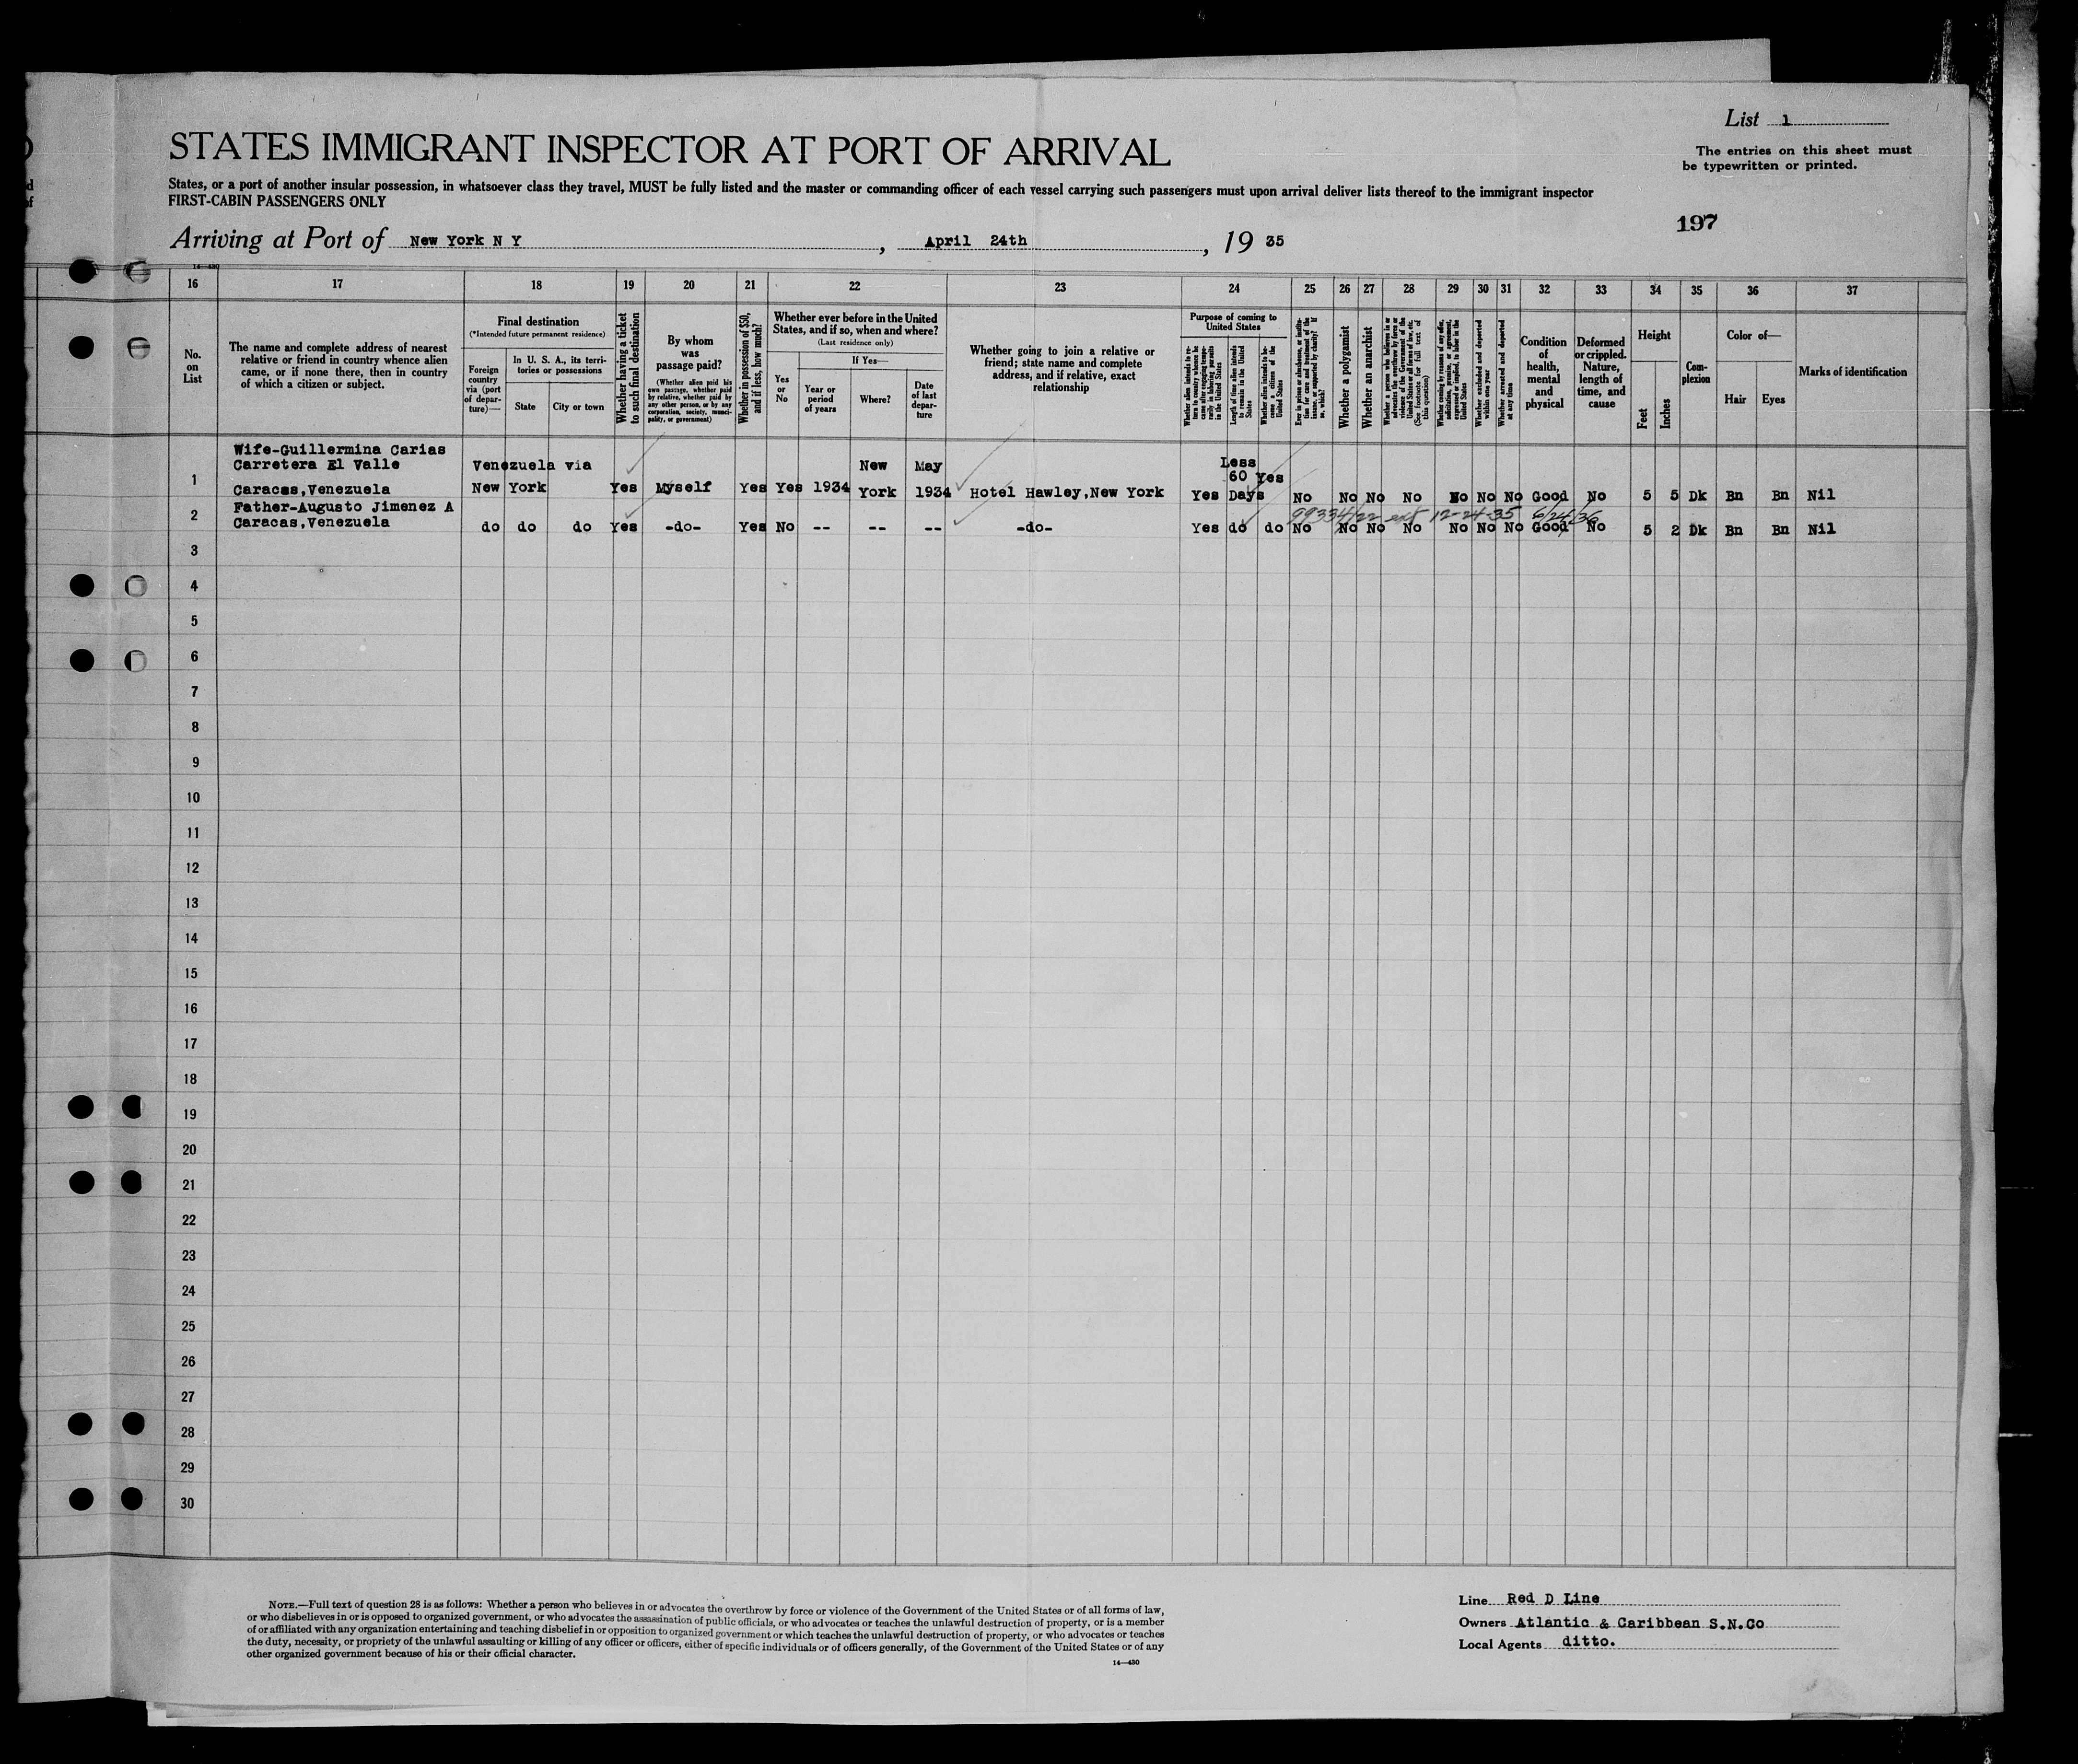 List 1
STATES IMMIGRANT INSPECTOR AT PORT OF ARRIVAL
The entries on this sheet must
be typewritten or printed.
States, or a port of another insular possession, in whatsoever class they travel, MUST be fully listed and the master or commanding officer of each vessel carrying such passengers must upon arrival deliver lists thereof to the immigrant inspector
FIRST-CABIN PASSENGERS ONLY
197
Arriving at Port of New York N Y, April 24th, 19 35
14—430
16 17 18 19 20 21 22 23 24 25 26 27 28 29 30 31 32 33 34 35 36 37
No.
on
List
The name and complete address of nearest
relative or friend in country whence alien
came, or if none there, then in country
of which a citizen or subject.
Final destination
(*Intended future permanent residence)
Foreign
country
via (port
of depar-
ture)—
In U. S. A., its terri-
tories or possessions
State
City or town
Whether having a ticket
to such final destination
By whom
was
passage paid?
(Whether alien paid his
own passage, whether paid
by relative, whether paid by
any other person, or by any
corporation, society, munici-
pality, or government)
Whether in possession of $50,
and if less, how much?
Whether ever before in the United
States, and if so, when and where?
(Last residence only)
Yes
or
No
If Yes—
Year or
period
of years
Where?
Date
of last
depar-
ture
Whether going to join a relative or
friend; state name and complete
address, and if relative, exact
relationship
Purpose of coming to
United States
Whether alien intends to re-
turn to country whence he
came after engaging tempo-
rarily in laboring pursuits
in the United States
Length of time alien intends
to remain in the United
States
Whether alien intends to be-
come a citizen of the
United States
Ever in prison or almshouse, or institu-
tion for care and treatment of the
insane, or supported by charity? If
so, which?
Whether a polygamist
Whether an anarchist
Whether a person who believes in or
advocates the overthrow by force or
violence of the Government of the
United States or all forms of law, etc.
(See footnote for full text of
this question)
Whether coming by reasons of any offer,
solicitation, promise, or agreement,
expressed or implied, to labor in the
United States
Whether excluded and deported
within one year
Whether arrested and deported
at any time
Condition
of
health,
mental
and
physical
Deformed
or crippled.
Nature,
length of
time, and
cause
Height
Feet
Inches
Com-
plexion
Color of—
Hair
Eyes
Marks of identification
Wife-Guillermina Carias
Carretera El Valle Venezuela via New May Less
1 Caracas,Venezuela New York Yes Myself Yes Yes 1934 York 1934 Hotel Hawley,New York Yes 60 Days Yes No No No No No No No Good No 5 5 Dk Bn Bn Nil
Father-Augusto Jimenez A 12-24-35 6/24/36
2 Caracas,Venezuela do do do Yes -do- Yes No -- -- -- -do- Yes do do No No No No No No No Good No 5 2 Dk Bn Bn Nil
3
4
5
6
7
8
9
10
11
12
13
14
15
16
17
18
19
20
21
22
23
24
25
26
27
28
29
30
NOTE.—Full text of question 28 is as follows: Whether a person who believes in or advocates the overthrow by force or violence of the Government of the United States or of all forms of law,
or who disbelieves in or is opposed to organized government, or who advocates the assassination of public officials, or who advocates or teaches the unlawful destruction of property, or is a member
of or affiliated with any organization entertaining and teaching disbelief in or opposition to organized government or which teaches the unlawful destruction of property, or who advocates or teaches
the duty, necessity, or propriety of the unlawful assaulting or killing of any officer or officers, either of specific individuals or of officers generally, of the Government of the United States or of any
other organized government because of his or their official character.
14—430
Line Red D Line
Owners Atlantic & Caribbean S.N.Co
Local Agents ditto.